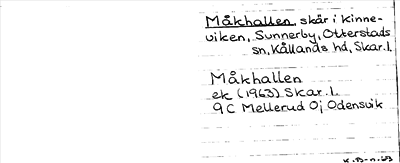 Måkhallen, skår i Kinne-
viken, Sunnerby, Otterstads
sn, Kållands hd, Skar. l.
Måkhallen
ek (1963) Skar. l.
9C Mellerud 0j Odensvik